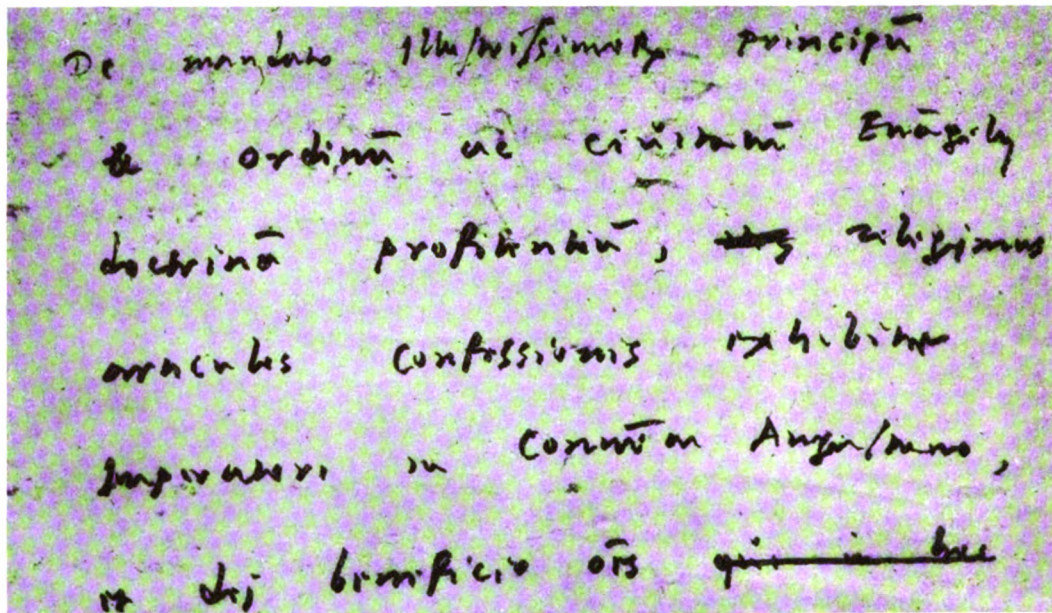 De mandato Illustrissimoꝝ principū
& ordinū ac ciuitatū Euāgelij
doctrinā profitentiū, relegimus
articulos Confessionis exhibitae
Imperatori in Conuētu Augustano,
et dei beneficio oēs qui in hoc